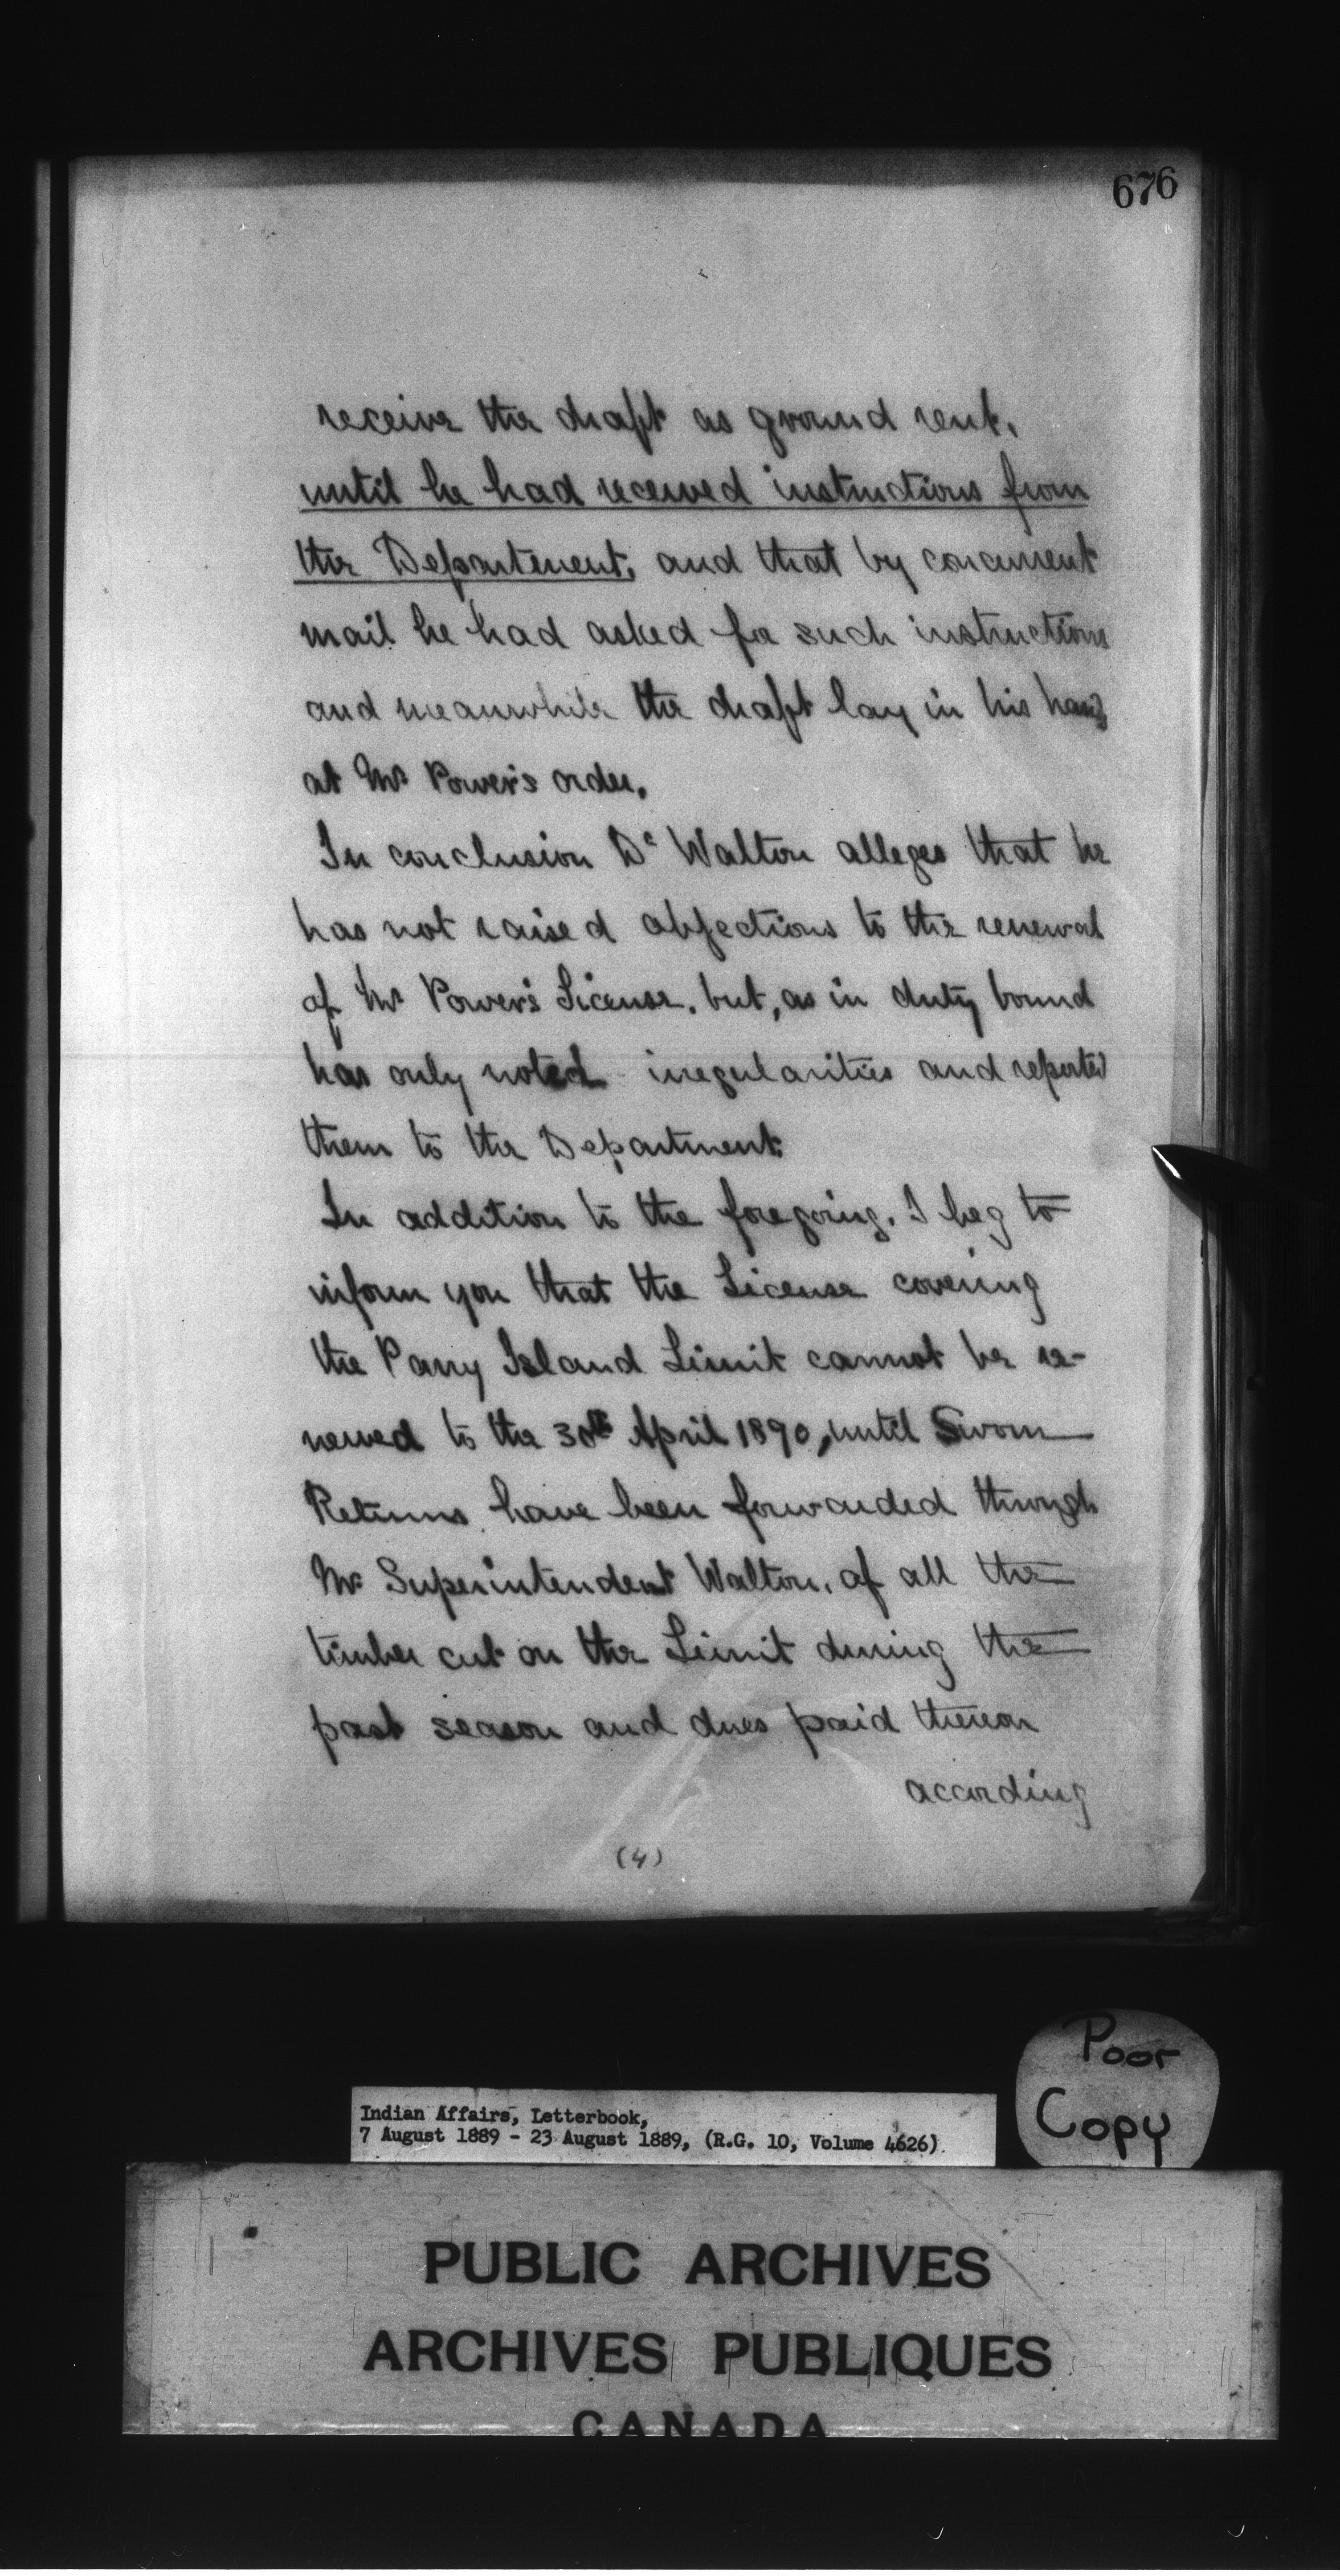 676
receive the draft as ground rent,
until he had received instructions from
the Department, and that by concurrent
mail he had asked for such instructions
and meanwhile the draft lay in his hands
at Mr Power's order.
In conclusion Dr Walton alleges that he
has not raised objections to the renewal
of Mr Power's License, but, as in duty bound
has only noted irregularities and reported
them to the Department.
In addition to the foregoing, I beg to
inform you that the License covering
the Parry Island Limit cannot be re-
newed to the 30th April 1890, until Sworn
Returns have been forwarded through
Mr Superintendent Walton, of all the
timber cut on the Limit during the
past season and dues paid thereon
according
(4)
Poor
Copy
Indian Affairs, Letterbook,
7 August 1889 - 23 August 1889, (R.G. 10, Volume 4626)
PUBLIC ARCHIVES
ARCHIVES PUBLIQUES
CANADA